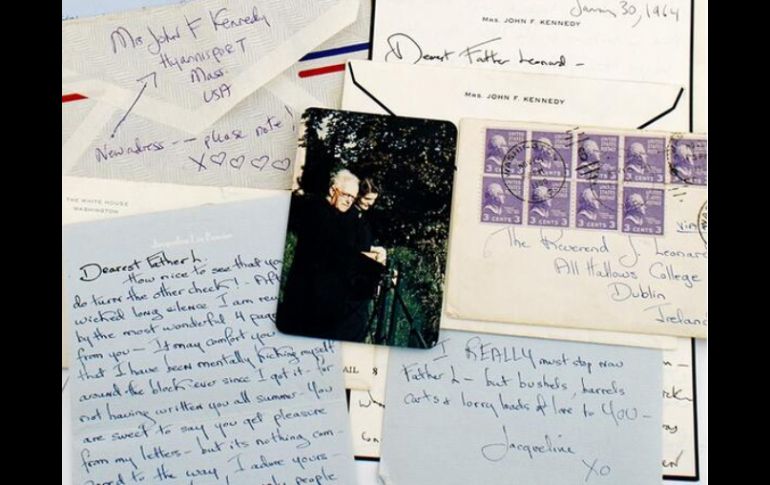 Mrs John F Kennedy
Hyannisport
Mass.
USA
New address -- please note!
X♡♡♡♡
January 30, 1964
MRS. JOHN F. KENNEDY
Dearest Father Leonard —
MRS. JOHN F. KENNEDY
THE WHITE HOUSE
WASHINGTON
UNITED STATES
3 CENTS 3 CENTS 3 CENTS
WASHINGTON
VIA
The Reverend J. Leonard
All Hallows College
Dublin
Ireland
Dearest Father L.
How nice to see that you
do turn the other cheek! - Aft
wicked long silence I am rew
by the most wonderful 4 page
from you — It may comfort you
that I have been mentally kicking myself
around the block ever since I got it - for
not having written you all summer. You
are sweet to say you get pleasure
from my letters - but its nothing com-
pared to the way I adore yours -
people
AIL
8
I REALLY must stop now
Father L - but bushels, barrels
carts & lorry loads of love to YOU —
Jacqueline
XO